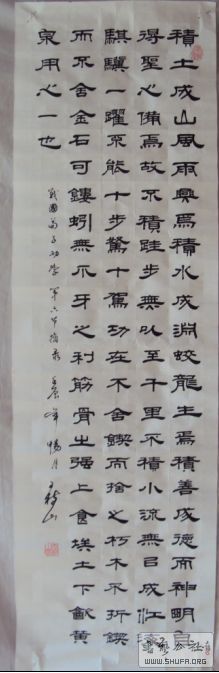 積土成山風雨興焉積水成淵蛟龍生焉積善成德而神明自
得聖心備焉故不積跬步無以至千里不積小流無已成江海
騏驥一躍不能十步駑十駕功在不舍鍥而捨之朽木不折鍥
而不舍金石可鏤蚓無爪牙之利筋骨之强上食埃土下飲黄
泉用心一也
戰國荀子勸學第六節摘录 壬辰年 暢月 山
WWW.SHUFA.ORG